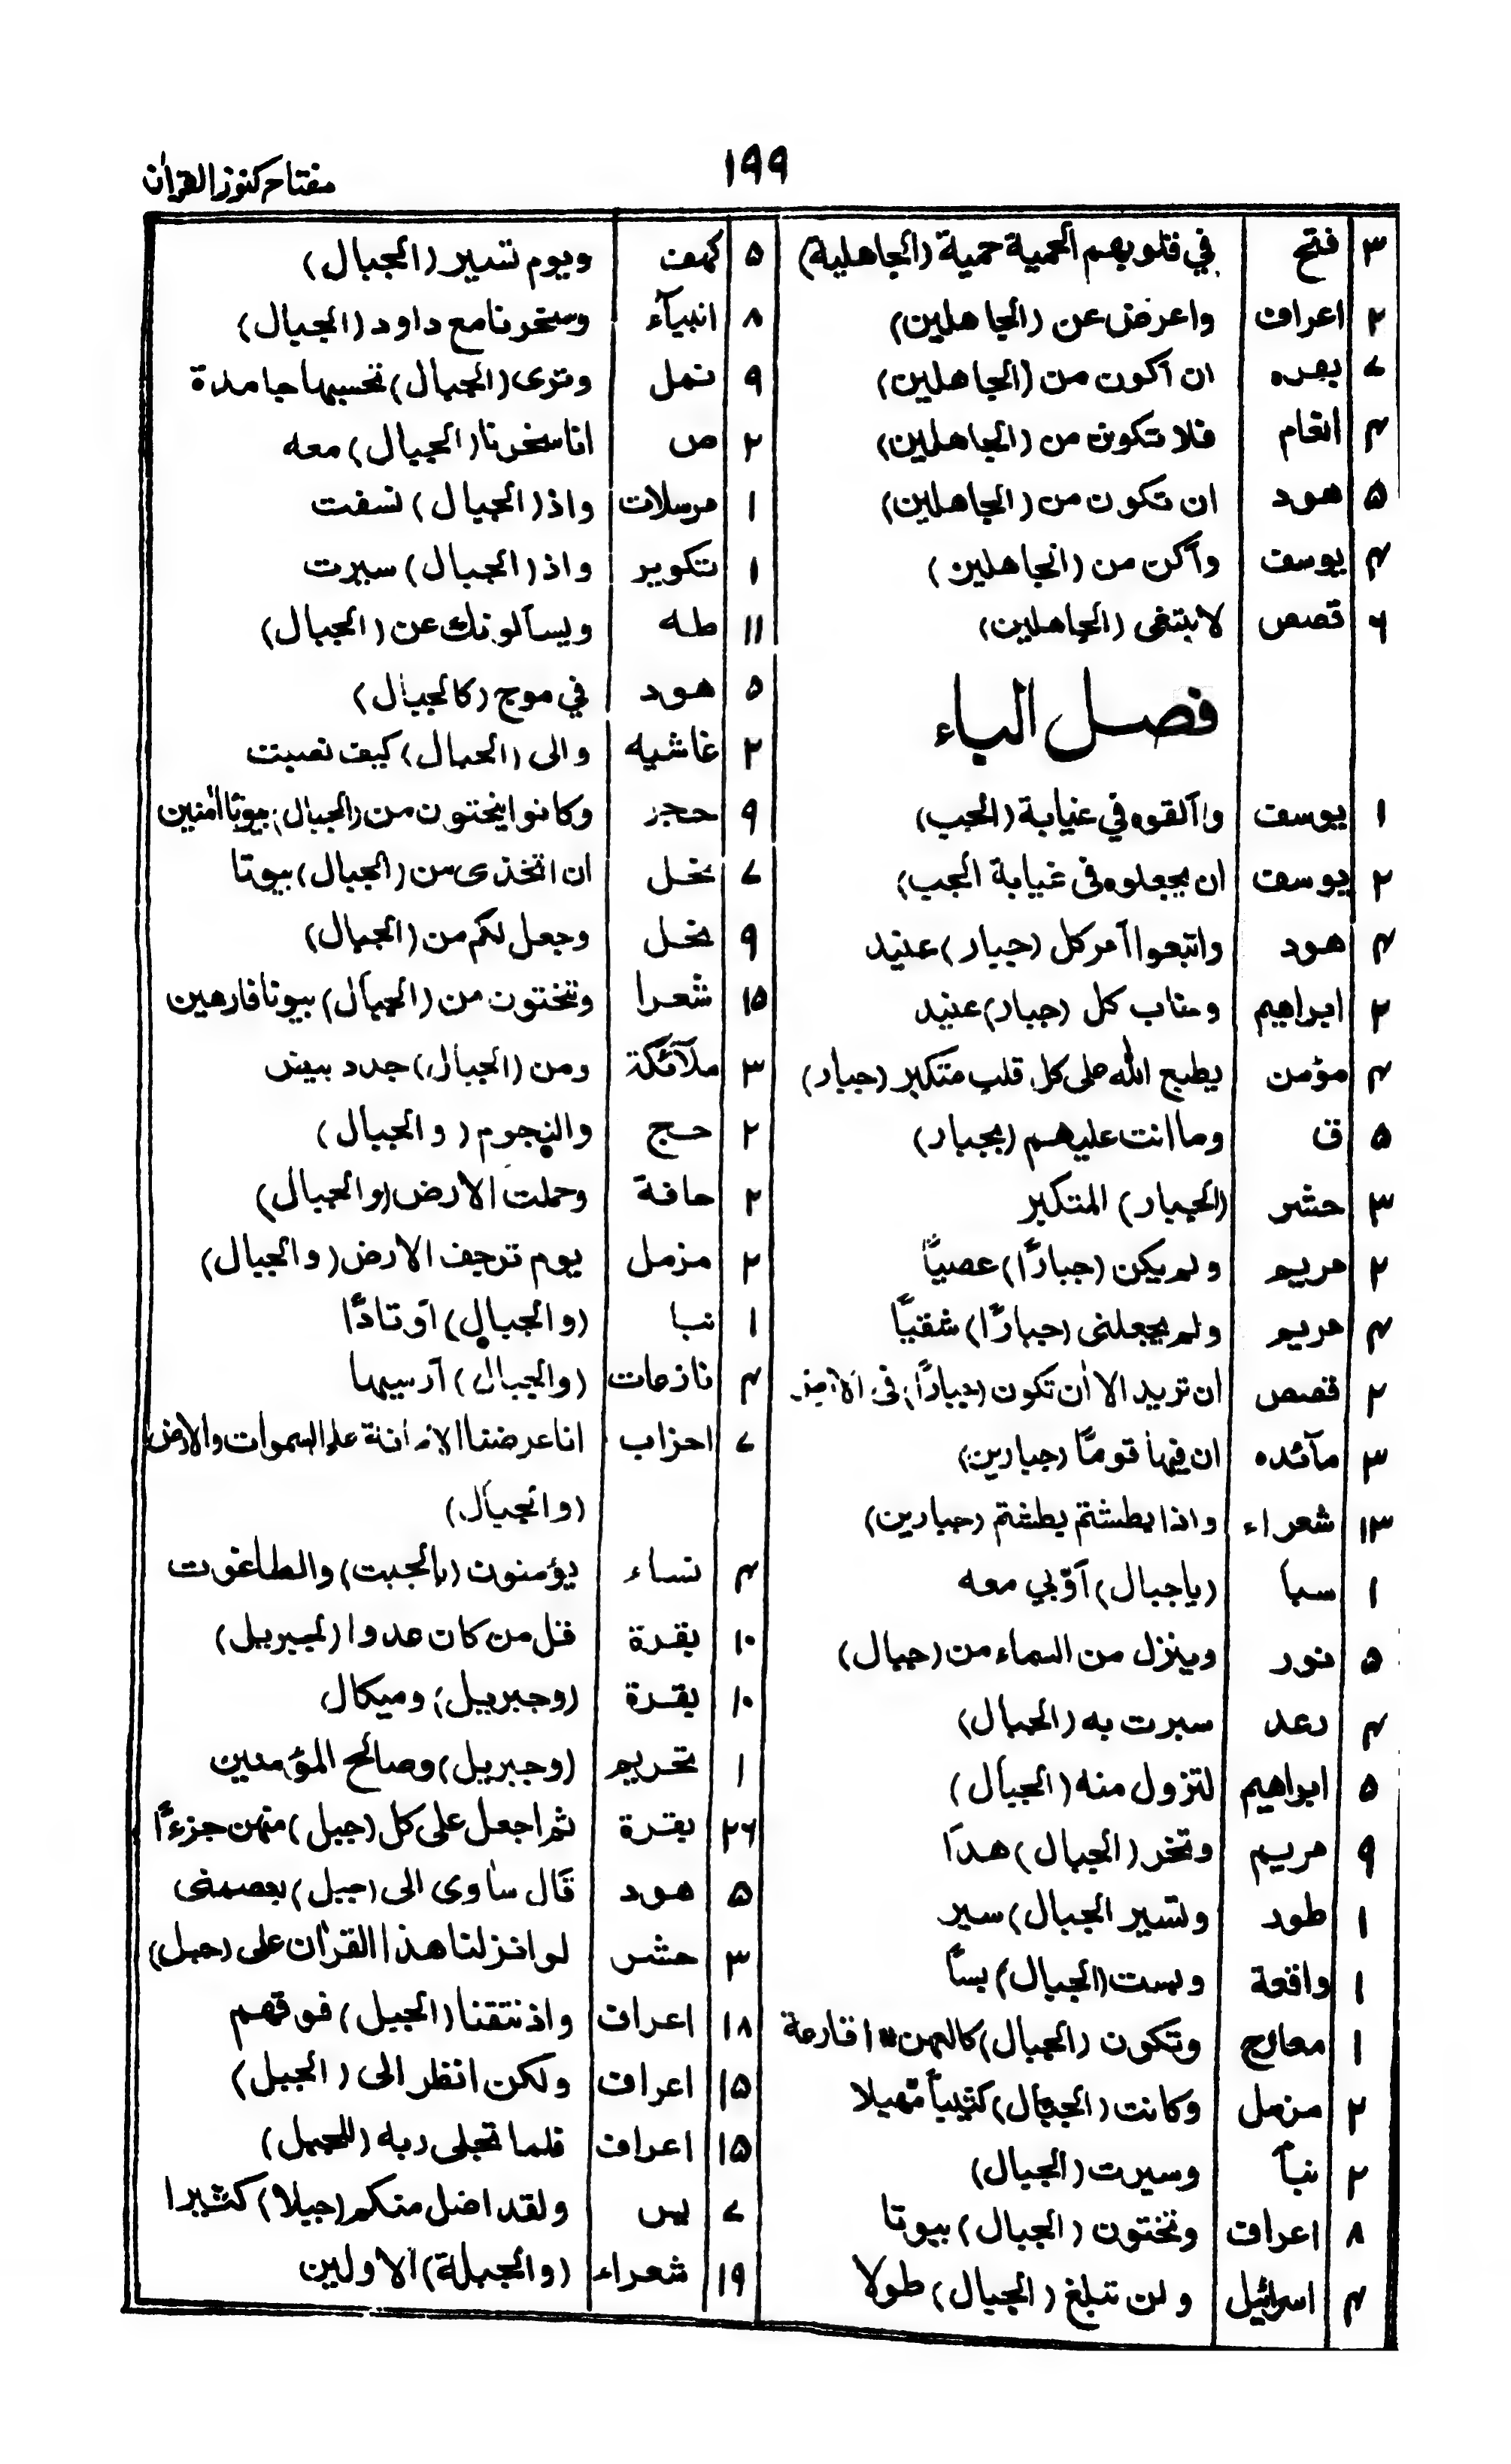 مفتاح كنوز القرآن
١٩٩
٣ فتح في قلوبهم الحمية حمية (الجاهلية)
٢ اعراف واعرض عن (الجاهلين)
٧ بقره ان اكون من (الجاهلين)
٤ انعام فلا تكون من (الجاهلين)
٥ هود ان تكون من (الجاهلين)
٤ يوسف وأكن من (الجاهلين)
٦ قصص لا بتغى (الجاهلين)
فصل الباء
١ يوسف وألقوه في غيابة (الجب)
٢ يوسف ان يجعلوه فى غيابة الجب)
٤ هود واتبعوا أمر كل (جبار) عنيد
٢ ابراهيم وخاب كل (جبار) عنيد
٤ مؤمن يطبع الله على كل قلب متكبر (جبار)
٥ ق وما انت عليهم (بجبار)
٣ حشر (الجبار) المتكبر
٢ مريم ولم يكن (جبارًا) عصيًا
٤ مريم ولم يجعلنى (جبارًا) شقيًا
٢ قصص ان تريد الا ان تكون (جبارًا) فى الارض
٣ مآئده ان فيها قومًا (جبارين)
١٣ شعراء واذا بطشتم بطشتم (جبارين)
١ سبا (ياجبال) أوّبي معه
٥ نور وينزل من السماء من (جبال)
٤ رعد سيرت به (الجبال)
٥ ابراهيم لتزول منه (الجبال)
٩ مريم وتخر (الجبال) هدًا
١ طور وتسير الجبال) سير
١ واقعة وبست (الجبال) بسًا
١ معارج وتكون (الجبال) كالعهن " ا قارعة
٢ مزمل وكانت (الجبال) كثيبًا مهيلا
٢ نبأ وسيرت (الجبال)
٨ اعراف وتنحتون (الجبال) بيوتا
٤ اسرائيل ولن تبلغ (الجبال) طولا
٥ كهف ويوم تسير (الجبال)
٨ انبيآء وسخرنا مع داود (الجبال)
٩ نمل وترى (الجبال) تحسبها جامدة
٢ ص انا سخرنا (الجبال) معه
١ مرسلات واذ (الجبال) نسفت
١ تكوير واذ (الجبال) سيرت
١١ طه ويسألونك عن (الجبال)
٥ هود في موج (كالجبال)
٢ غاشيه والى (الجبال) كيف نصبت
٩ حجر وكانوا ينحتون من (الجبال) بيوتا امنين
٧ نحل ان اتخذى من (الجبال) بيوتا
٩ نحل وجعل لكم من (الجبال)
١٥ شعرا وتنحتون من (الجبال) بيوتا فارهين
٣ ملآئكة ومن (الجبال) جدد بيض
٢ حج والنجوم (والجبال)
٢ حاقة وحملت الارض (والجبال)
٢ مزمل يوم ترجف الارض (والجبال)
١ نبا (والجبال) أوتادًا
٤ نازعات (والجبال) أرسيها
٧ احزاب انا عرضنا الامانة على السموات والارض
(والجبال)
٤ نساء يؤمنون (بالجبت) والطاغوت
١٠ بقرة قل من كان عدوا (لجبريل)
١٠ بقرة (وجبريل) وميكال
١ تحريم (وجبريل) وصالح المؤمنين
٢٦ بقرة ثم اجعل على كل (جبل) منهن جزءًا
٥ هود قال سآوى الى (جبل) يعصمنى
٣ حشر لو انزلنا هذا القرآن على (جبل)
١٨ اعراف واذ نتقنا (الجبل) فوقهم
١٥ اعراف ولكن انظر الى (الجبل)
١٥ اعراف فلما تجلى ربه (للجبل)
٧ يس ولقد اضل منكم (جبلا) كثيرا
١٩ شعراء (والجبلة) الاولين